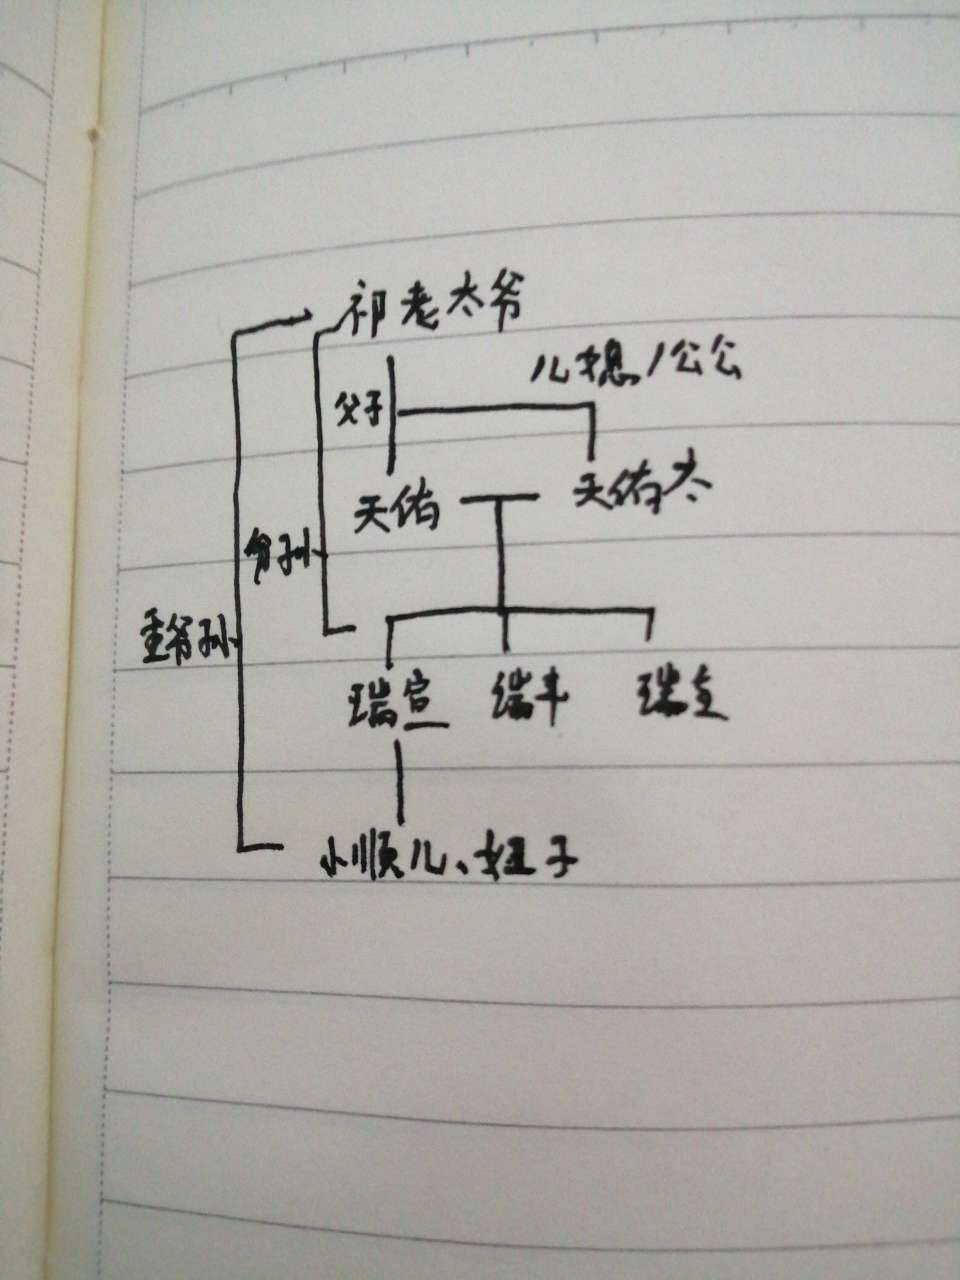 祁老太爷
儿媳/公公
父子
天佑 天佑太
爷孙
重爷孙
瑞宣 瑞丰 瑞全
小顺儿、妞子